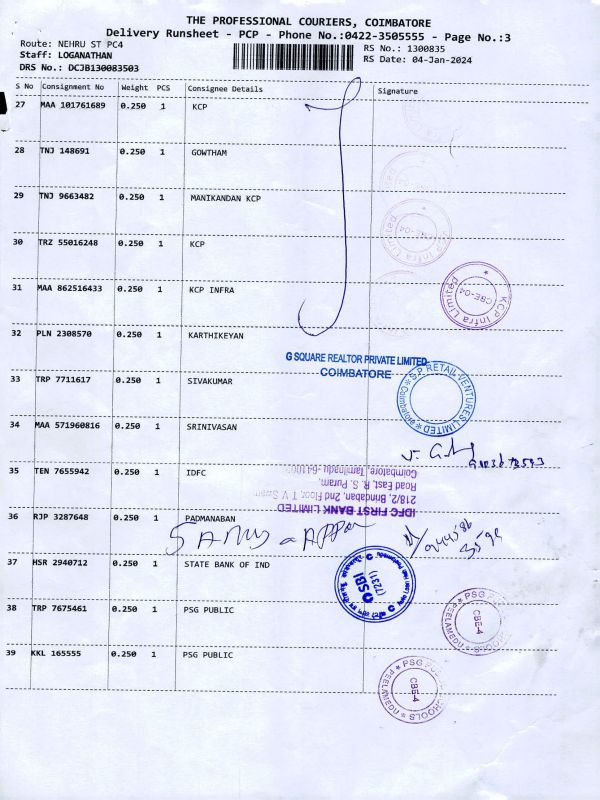 THE PROFESSIONAL COURIERS, COIMBATORE
Delivery Runsheet - PCP - Phone No.:0422-3505555 - Page No.:3
Route: NEHRU ST PC4
Staff: LOGANATHAN
DRS No.: DCJB130083503
RS No.: 1300835
RS Date: 04-Jan-2024
S No Consignment No Weight PCS Consignee Details Signature
27 MAA 101761689 0.250 1 KCP
28 TNJ 148691 0.250 1 GOWTHAM
29 TNJ 9663482 0.250 1 MANIKANDAN KCP
30 TRZ 55016248 0.250 1 KCP
KCP Infra Limited CBE-04
31 MAA 862516433 0.250 1 KCP INFRA
KCP Infra Limited CBE-04
32 PLN 2308570 0.250 1 KARTHIKEYAN
G SQUARE REALTOR PRIVATE LIMITED
COIMBATORE
33 TRP 7711617 0.250 1 SIVAKUMAR
S.P. RETAIL VENTURES LIMITED Coimbatore
34 MAA 571960816 0.250 1 SRINIVASAN
35 TEN 7655942 0.250 1 IDFC
IDFC FIRST BANK LIMITED
218/2, Brindaban, 2nd Floor, T.V. Swamy
Road East, R. S. Puram,
Coimbatore, Tamilnadu-641002
36 RJP 3287648 0.250 1 PADMANABAN
37 HSR 2940712 0.250 1 STATE BANK OF IND
SBI
(7231)
38 TRP 7675461 0.250 1 PSG PUBLIC
PSG PUBLIC SCHOOLS PEELAMEDU CBE-4
39 KKL 165555 0.250 1 PSG PUBLIC
PSG PUBLIC SCHOOLS PEELAMEDU CBE-4